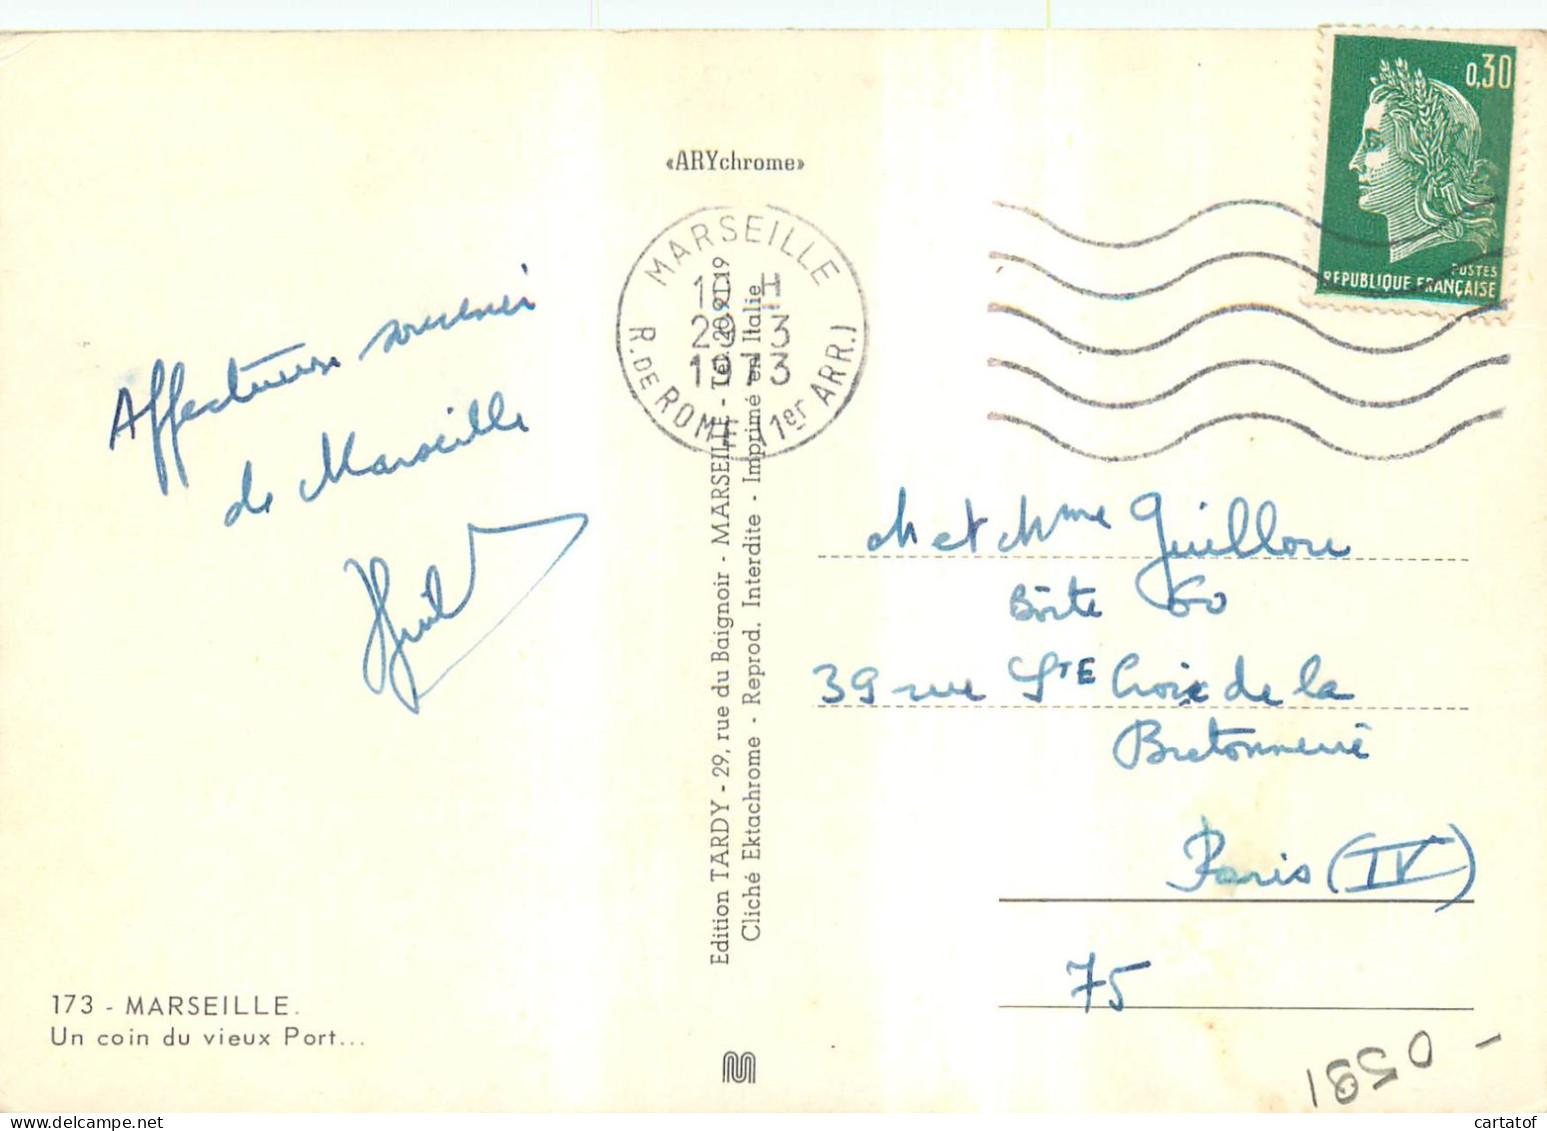 «ARYchrome»
0,30
POSTES
REPUBLIQUE FRANÇAISE
MARSEILLE
29-3
1973
R. DE ROME (1er ARR.)
Affectueux souvenir
de Marseille
M et Mme Guillou
Boîte 60
39 rue Ste Croix de la
Bretonnerie
Paris (IV)
75
Edition TARDY - 29, rue du Baignoir - MARSEILLE - Tél. 20.91.19
Cliché Ektachrome - Reprod. Interdite - Imprimé en Italie
173 - MARSEILLE.
Un coin du vieux Port...
cartatof